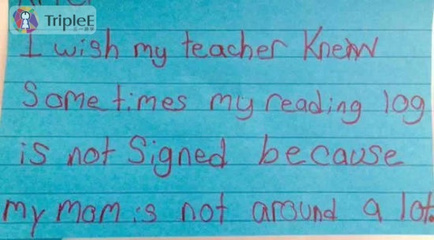 TripleE
I wish my teacher Knew
Sometimes my reading log
is not Signed because
my mom is not around a lot.